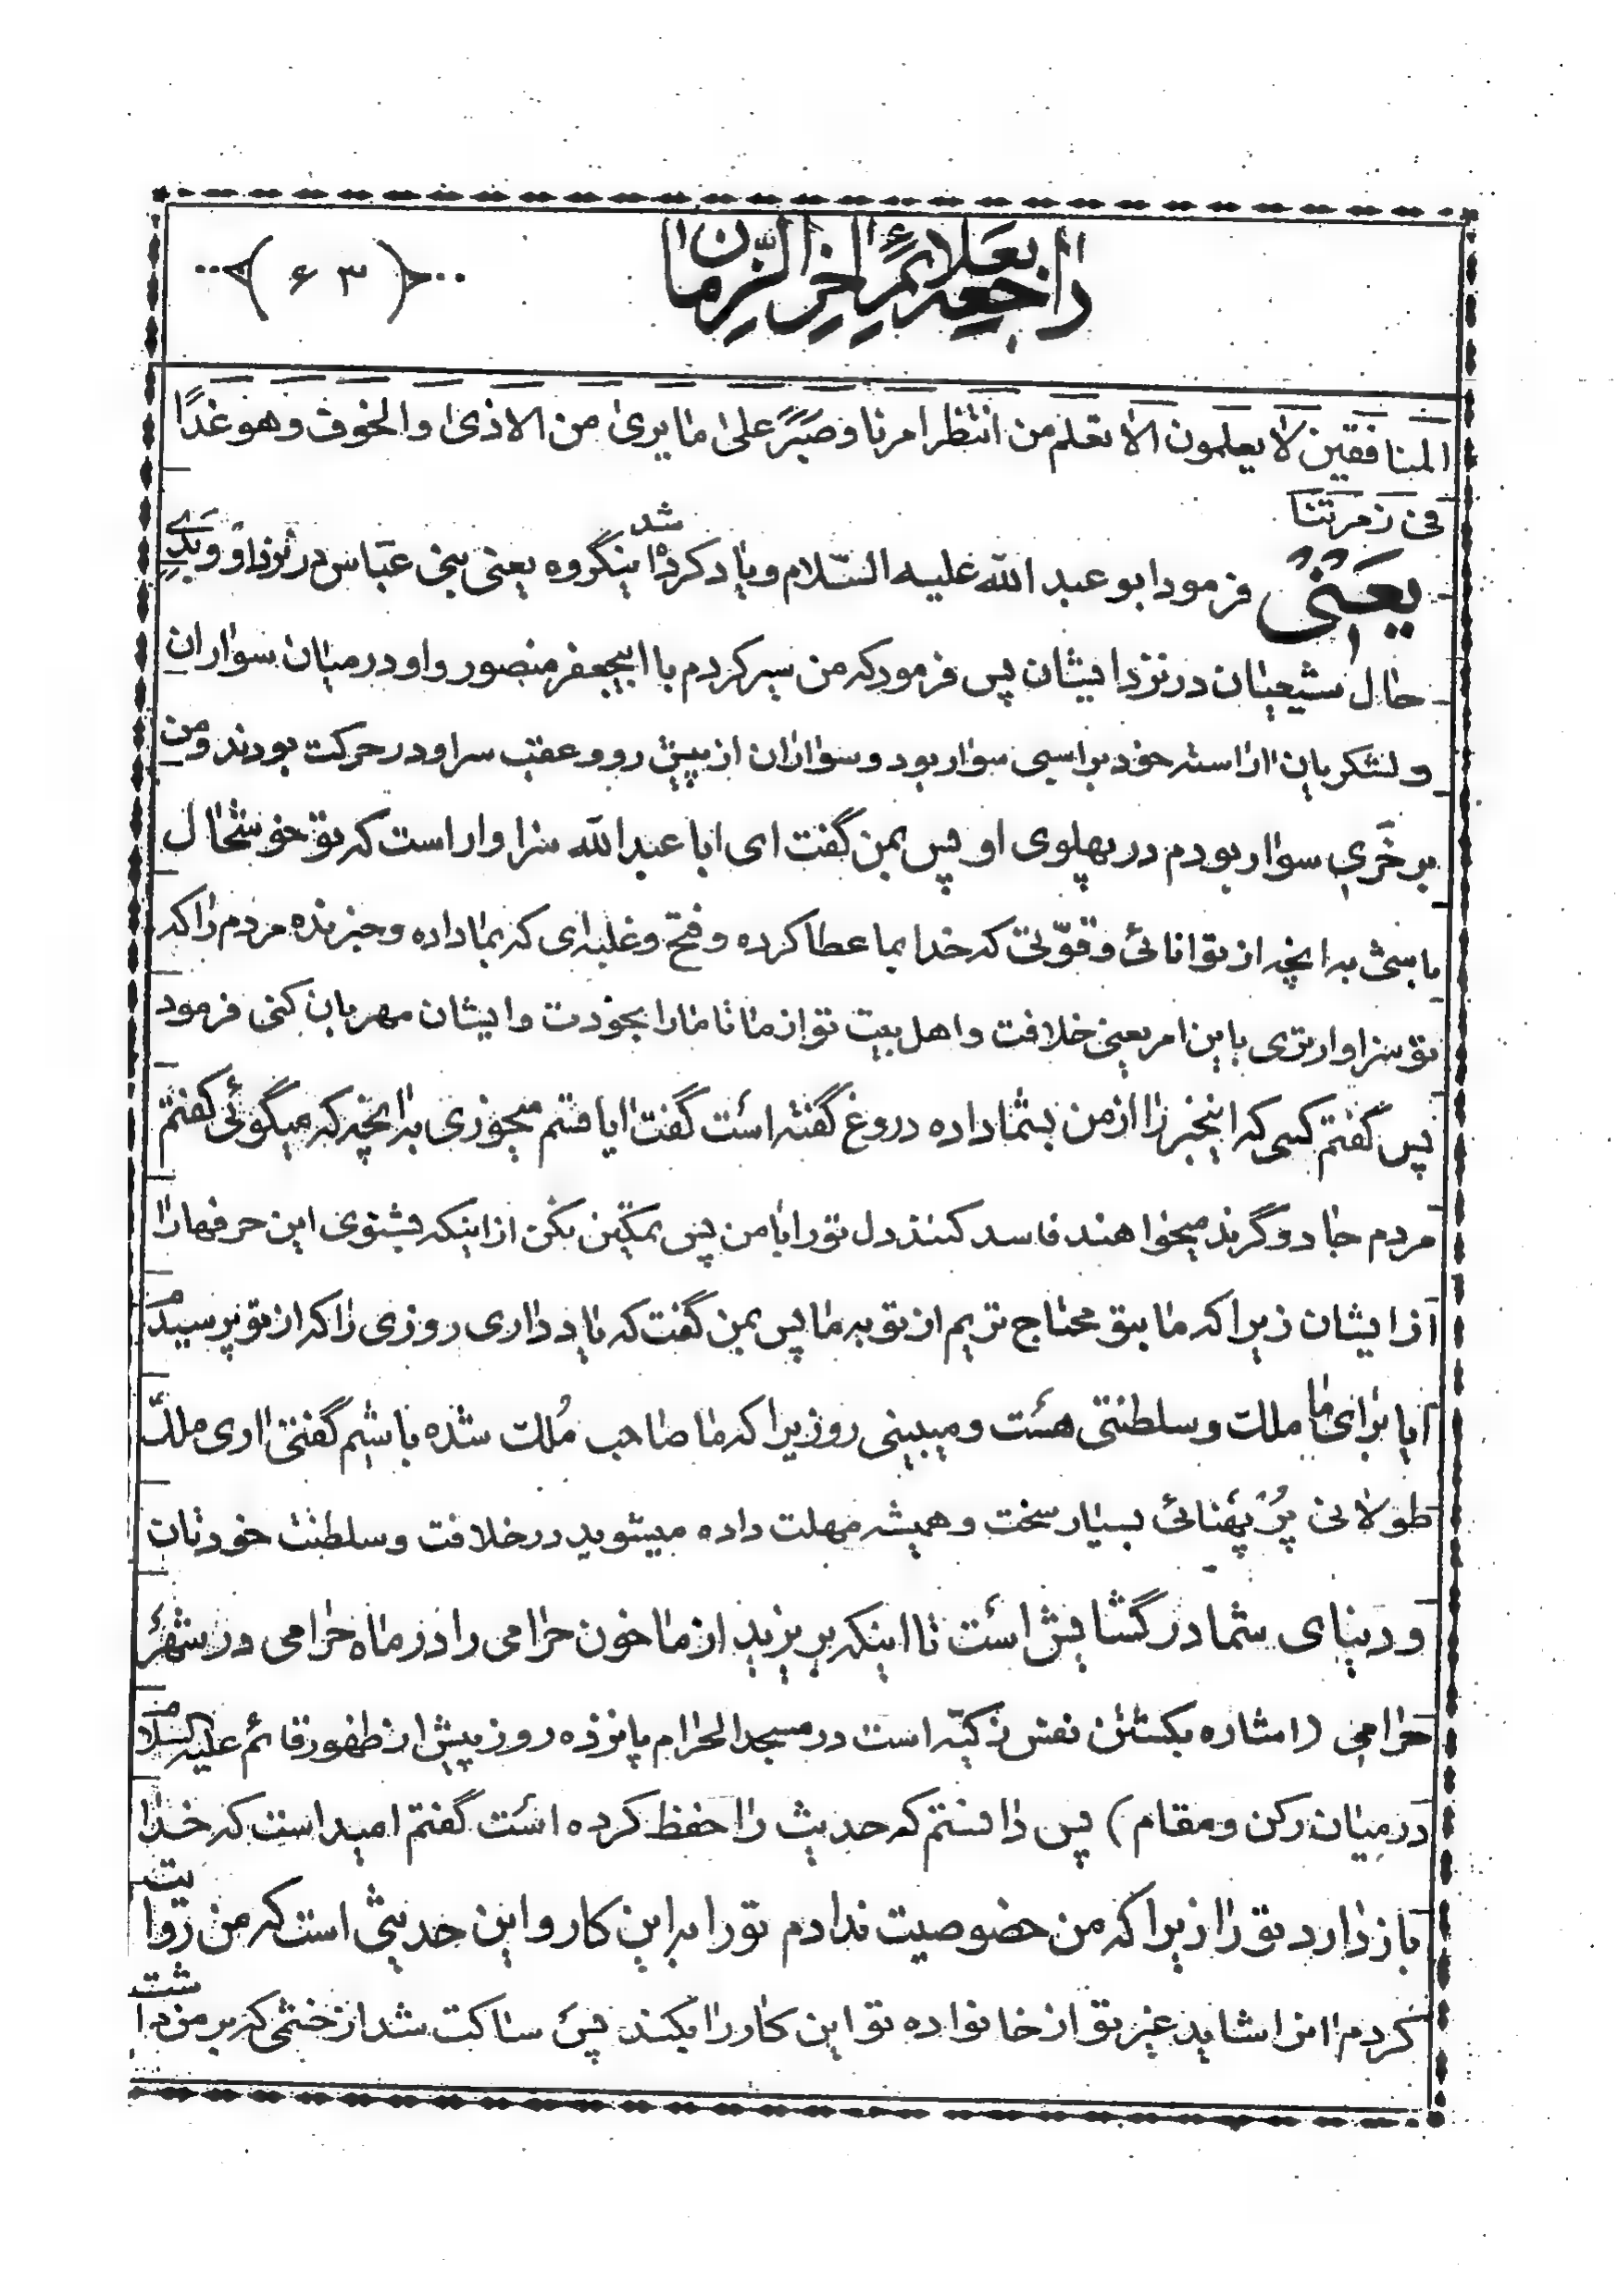 راجعه بعلائم اخر الزمان
۶۳
المنافقین لا یعلمون الا تعلم من انتظر امرنا و صبر علی ما یری من الاذی والخوف و هو غدا
فی زمرتنا
یعنی فرمود ابو عبد الله علیه السلام و یاد کرده شد اینگروه یعنی بنی عباس در نزد او و بدی
حال شیعیان در نزد ایشان پس فرمود که من سیر کردم با ابیجعفر منصور و او در میان سواران
و لشکریان اراسته خود بر اسبی سوار بود و سواران از پیش رو و عقب سر او در حرکت بودند و من
بر خری سوار بودم در پهلوی او پس بمن گفت ای ابا عبد الله سزاوار است که تو خوشحال
باشی به انچه از توانائی و قوتی که خدا بما عطا کرده و فتح و غلبه ای که بما داده و خبر نده مردم را که
تو سزاوارتری باین امر یعنی خلافت و اهل بیت تو از ما تا ما را بخودت و ایشان مهربان کنی فرمود
پس گفتم کسی که اینخبر را از من بشما داده دروغ گفته است گفت ایا قسم میخوری به انچه که میگوئی گفتم
مردم جادوگرند میخواهند فاسد کنند دل تو را با من پس تمکین نکن از اینکه بشنوی این حرفها را
از ایشان زیرا که ما بتو محتاج تریم از تو به ما پس بمن گفت که یاد داری روزی را که از تو پرسیدم
ایا برای ما ملک و سلطنتی هست و میبینی روزیرا که ما صاحب ملک شده باشیم گفتی اری ملک
طولانی پر پهنائی بسیار سخت و همیشه مهلت داده میشوید در خلافت و سلطنت خودتان
و دنیای شما در گشایش است تا اینکه بریزید از ما خون حرامی را در ماه حرامی در شهر
حرامی (اشاره بکشتن نفس زکیه است در مسجد الحرام پانزده روز پیش از ظهور قائم علیه السلام
در میان رکن و مقام) پس دانستم که حدیث را حفظ کرده است گفتم امید است که خدا
باز دارد تو را زیرا که من خصوصیت ندادم تو را به این کار و این حدیثی است که من روایت
کردم انرا شاید غیر تو از خانواده تو این کار را بکند پس ساکت شد از خشمی که بر من داشت